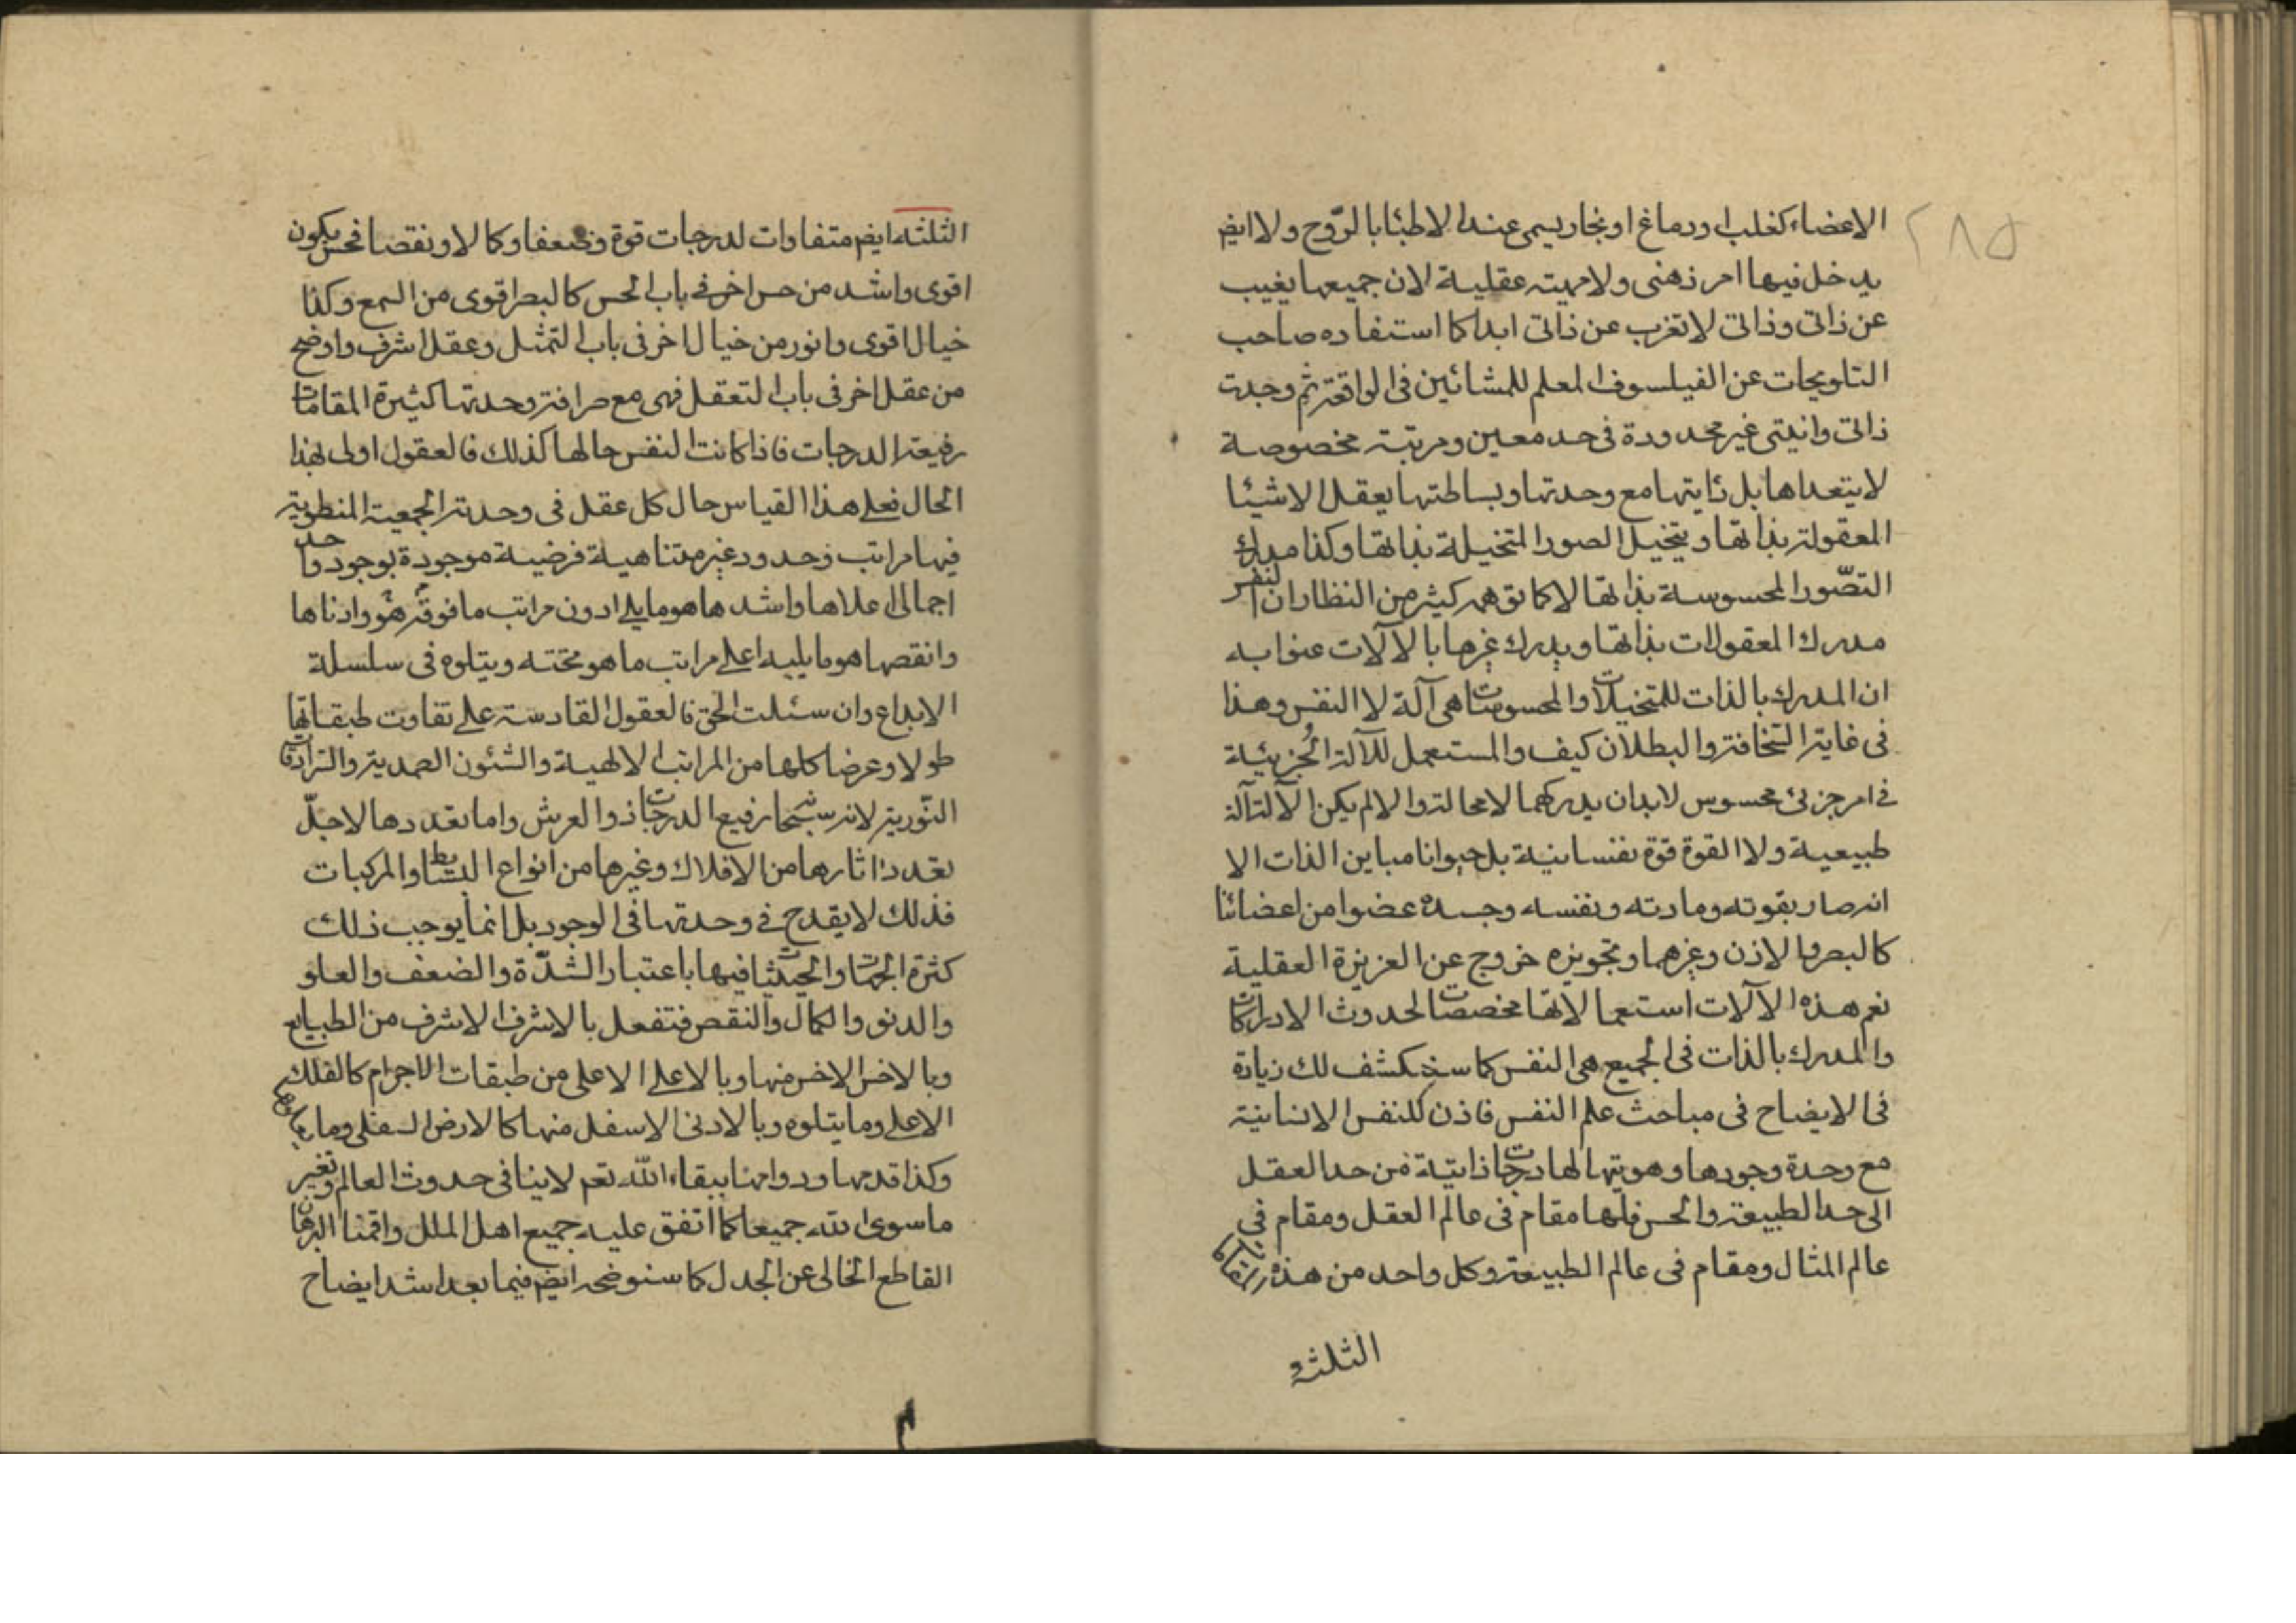 ٢٨٥
الاعضاء كغلب او دماغ او بخار يسمى عند الاطبّا بالرّوح ولا ايض
يدخل فيها امر ذهنى ولا مهيته عقلية لان جميعها يغيب
عن ذاتى وذاتى لا تغرب عن ذاتى ابدا كما استفاده صاحب
التلويحات عن الفيلسوف المعلم للمشائين فى الواقعة ثم وجدت
ذاتى وانيتى غير محدودة فى حد معين ومرتبة مخصوصة
لا يتعداها بل ذايتها مع وحدتها وبساطتها يعقل الاشيئا
المعقولة بذاتها ويتخيل الصور المتخيلة بذاتها وكذا مدرك
التصّور المحسوسة بذاتها لا كما توهمه كيثر من النظار ان النفس
مدرك المعقولات بذاتها ويدرك غيرها بالآلات عنوا به
ان المدرك بالذات للمتخيلات والمحسوسات هى آلة لا النفس وهذا
فى غاية السخافة والبطلان كيف والمستعمل للآلة الجزيئة
فى امر جزئى محسوس لابد ان يدركهما لا محالة والا لم يكن الآلة آلة
طبيعية ولا القوة قوة نفسانية بل حيوانا مباين الذات الا
انه صار بقوته ومادته ونفسه وجسده عضوا من اعضائنا
كالبصر والاذن وغيرهما وتجويزه خروج عن الغريزة العقلية
نعم هذه الآلات استعمالاتها مخصصات لحدوث الادراكات
والمدرك بالذات فى الجميع هى النفس كما سينكشف لك زيادة
فى الايضاح فى مباحث علم النفس فاذن للنفس الانسانية
مع وحدة وجودها وهويتها لها درجات ذاتية من حد العقل
الى حد الطبيعة والحس فلها مقام فى عالم العقل ومقام فى
عالم المثال ومقام فى عالم الطبيعة وكل واحد من هذه المقامات
الثلثة
الثلثة ايض متفاوات لدرجات قوة وضعفا وكمالا ونقصا فحس يكون
اقوى واشد من حس اخر فى باب الحس كالبصر اقوى من السمع وكذا
خيال اقوى وانور من خيال اخر فى باب التمثل وعقل اشرف واوضح
من عقل اخر فى باب التعقل فهى مع صرافة وحدتها كثيرة المقامات
رفيعة الدرجات فاذا كانت النفس حالها كذلك فالعقول اولى بهذا
الحال فعلى هذا القياس حال كل عقل فى وحدته الجمعية المنطوية
فيها مراتب وحدود غير متناهية فرضية موجودة بوجود واحد
اجمالى اعلاها واشدها هو ما يلى ادون مراتب ما فوقه هو وادناها
وانقصها هو ما يليه اعلى مراتب ما هو تحته ويتلوه فى سلسلة
الابداع وان سئلت الحق فالعقول القادسة على تفاوت طبقاتها
طولا وعرضا كلها من المراتب الالهية والشئون الصمدية والسرادقات
النّورية لانه سبحانه رفيع الدرجات ذو العرش واما تعددها لاجل
تعدد اثارها من الافلاك وغيرها من انواع البسائط والمركبات
فذلك لا يقدح فى وحدتها فى الوجود بل انما يوجب ذلك
كثرة الجهات والحيثيات فيها باعتبار الشدّة والضعف والعلو
والدنو والكمال والنقص فتفعل بالاشرف الاشرف من الطبايع
وبالاخس الاخس منها وبالاعلى الاعلى من طبقات الاجرام كالفلك
الاعلى وما يتلوه وبالادنى الاسفل منها كالارض السفلى وما
وكذا قدمها ودوامها ببقاء الله تعم لا ينافى حدوث العالم وتغير
ما سوى الله جميعا كما اتفق عليه جميع اهل الملل واقمنا البرهان
القاطع الخالى عن الجدل كما سنوضحه ايض فيما بعد اشد ايضاح